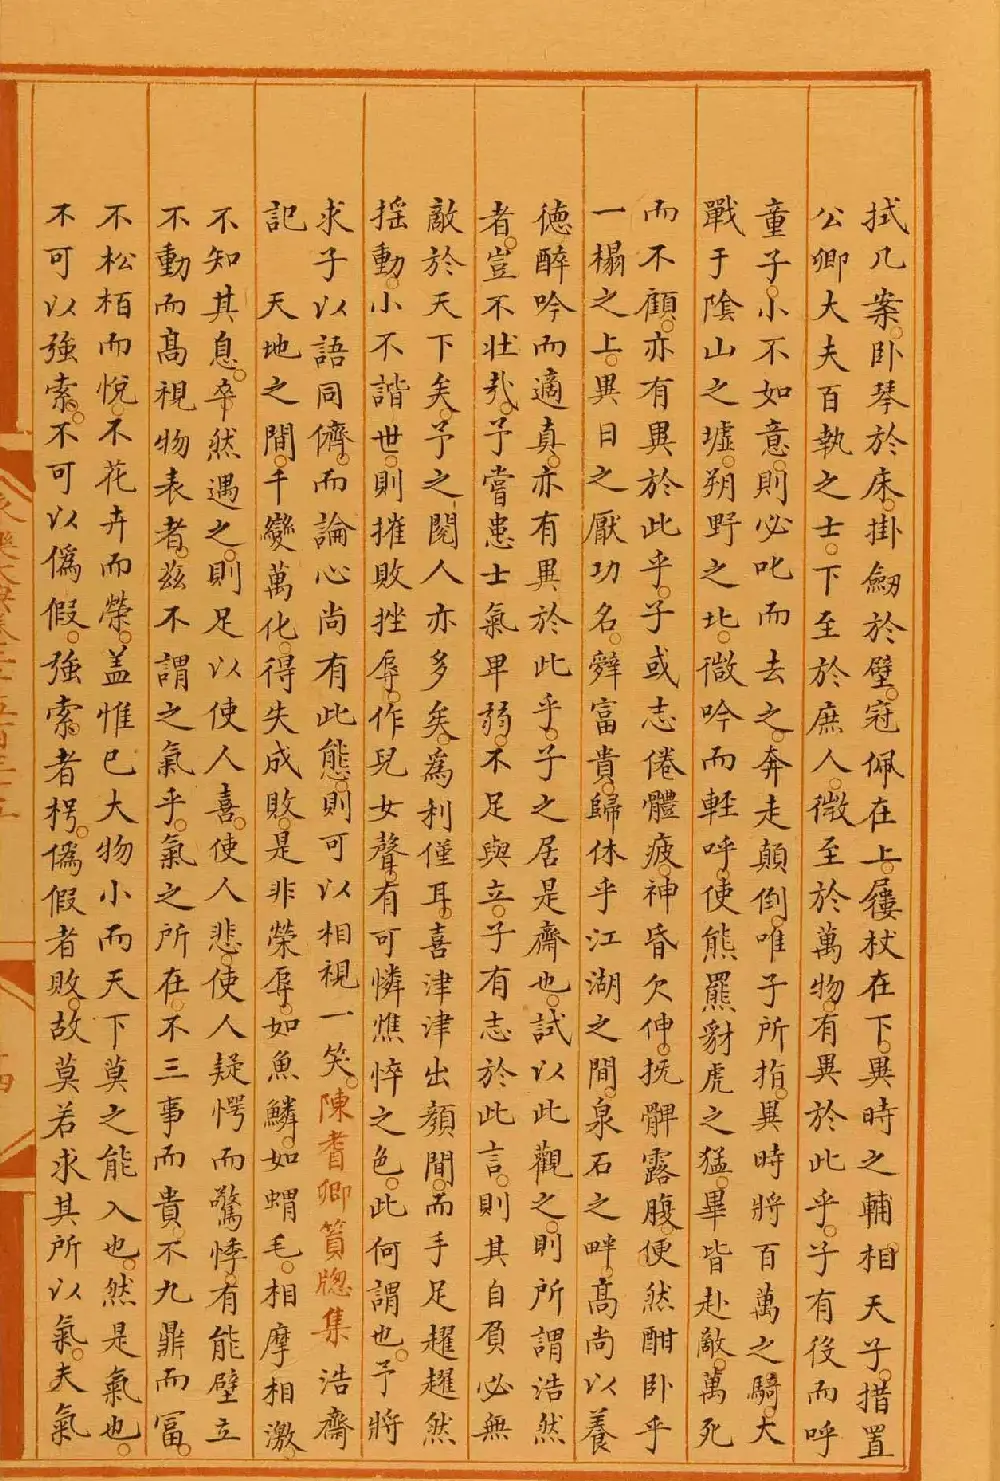 拭几案。卧琴於床。掛劒於壁。冠佩在上。屨杖在下。異時之輔相天子。措置
公卿大夫百執之士。下至於庶人。微至於萬物。有異於此乎。子有後而呼
童子。小不如意。則必叱而去之。奔走顛倒。唯子所指。異時將百萬之騎。大
戰于隂山之墟。朔野之北。微吟而輕呼。使熊羆豺虎之猛。畢皆赴敵。萬死
而不顧。亦有異於此乎。子或志倦體疲。神昏欠伸。撫髀露腹。便然酣卧乎
一榻之上。異日之厭功名。辤富貴。歸休乎江湖之間。泉石之畔。高尚以養
德。醉吟而適真。亦有異於此乎。子之居是齋也。試以此觀之。則所謂浩然
者。豈不壯哉。予嘗患士氣卑弱。不足與立。子有志於此言。則其自負必無
敵於天下矣。予之閱人亦多矣。爲利僅耳。喜津津出顏間。而手足趯趯然
揺動。小不諧世。則摧敗挫辱。作兒女聲。有可憐憔悴之色。此何謂也。予將
求子以語同儕。而論心尚有此態。則可以相視一笑。陳耆卿篔牕集浩齋
記　天地之間。千變萬化。得失成敗。是非榮辱。如魚鱗。如蝟毛。相摩相激。
不知其息。卒然遇之。則足以使人喜。使人悲。使人疑愕而驚悸。有能壁立
不動而高視物表者。兹不謂之氣乎。氣之所在。不三事而貴。不九鼎而富。
不松栢而悅。不花卉而榮。盖惟巳大物小而天下莫之能入也。然是氣也。
不可以強索。不可以僞假。強索者枵。僞假者敗。故莫若求其所以氣。夫氣